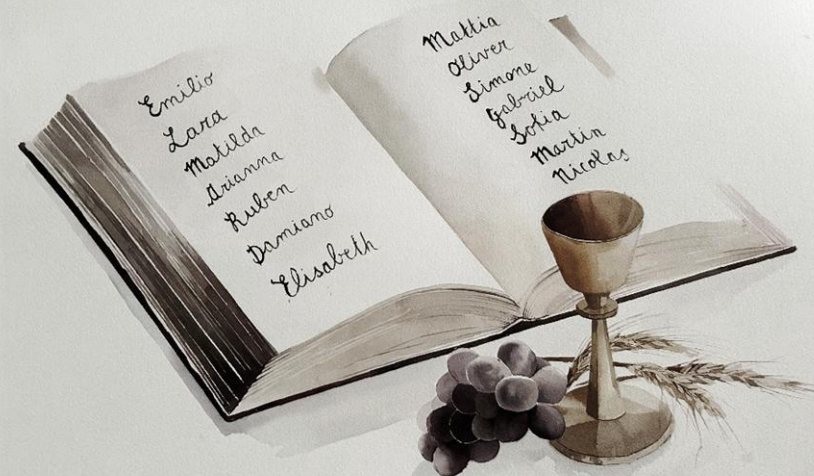 Emilio
Lara
Matilda
Arianna
Ruben
Damiano
Elisabeth
Mattia
Oliver
Simone
Gabriel
Sofia
Martin
Nicolas